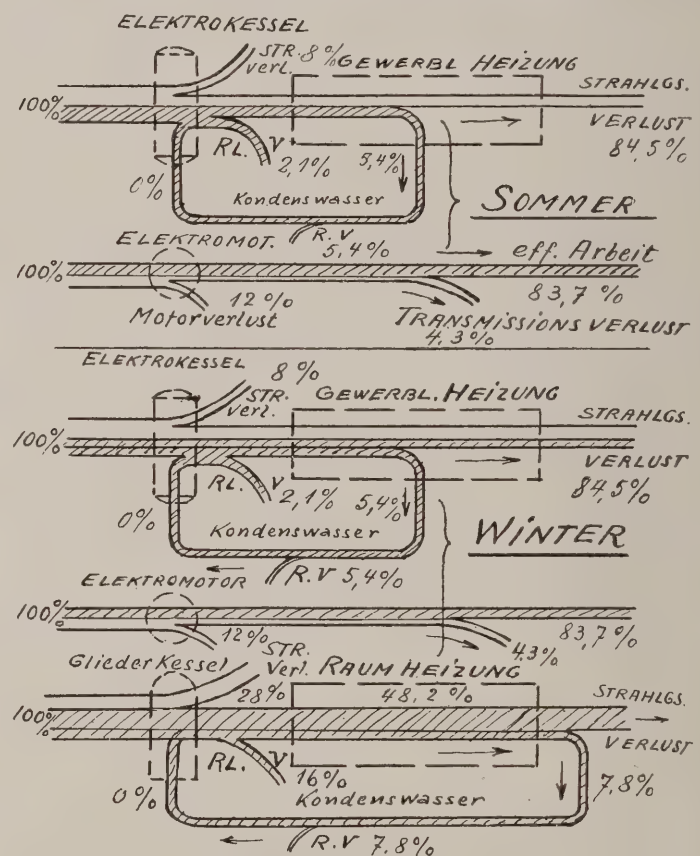 ELEKTROKESSEL
STR. 8%
verl.
GEWERBL HEIZUNG
STRAHLGS.
100%
VERLUST
84,5%
RL. V
2,1%
5,4%
0%
Kondenswasser
SOMMER
R.V
5,4%
ELEKTROMOT.
eff. Arbeit
100%
83,7%
12%
Motorverlust
TRANSMISSIONS VERLUST
4,3%
ELEKTROKESSEL
8%
STR.
verl.
GEWERBL. HEIZUNG
STRAHLGS.
100%
VERLUST
84,5%
RL. V
2,1%
5,4%
0%
Kondenswasser
WINTER
R.V 5,4%
ELEKTROMOTOR
100%
83,7%
12%
4.3%
Glieder Kessel
STR.
Verl.
RAUM HEIZUNG
28%
48,2%
STRAHLGS.
100%
VERLUST
RL. V
16%
0%
Kondenswasser
7,8%
R.V 7,8%